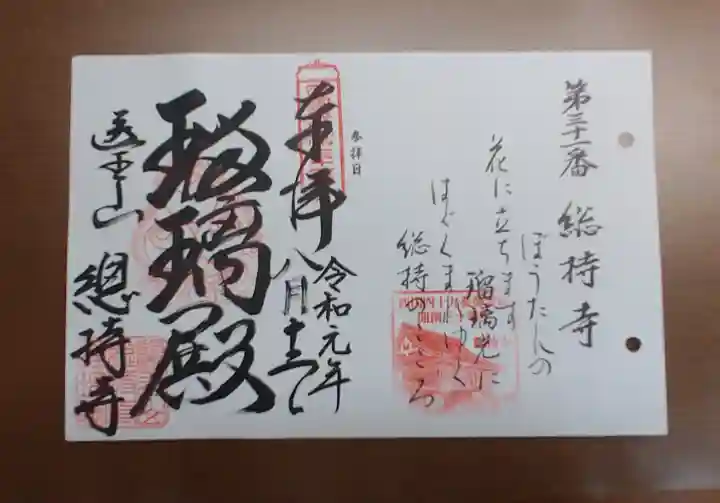 第三十一番 総持寺
ぼうたんの
花に立ちます
瑠璃光に
はぐくまれゆく
総持のこころ
参拝日
奉拝
令和元年
八月十三日
瑠璃殿
總持寺